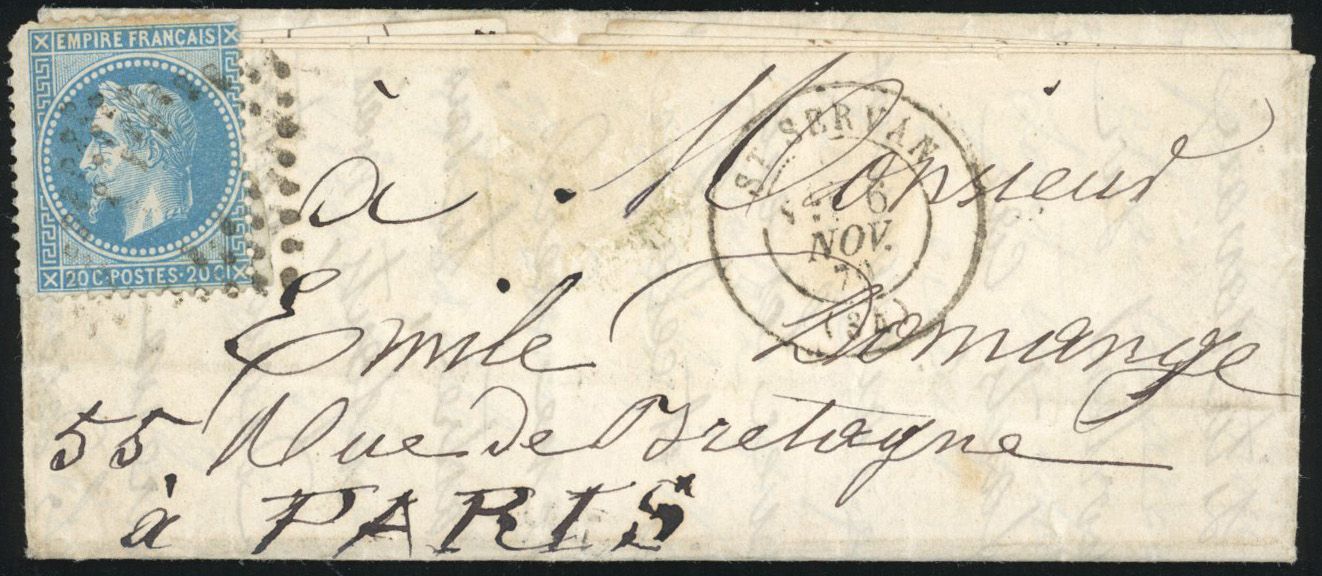 EMPIRE FRANÇAIS
20C·POSTES·20C
ST SERVAN
6
NOV.
(34)
à Monsieur
Emile Domange
55, Rue de Bretagne
à PARIS